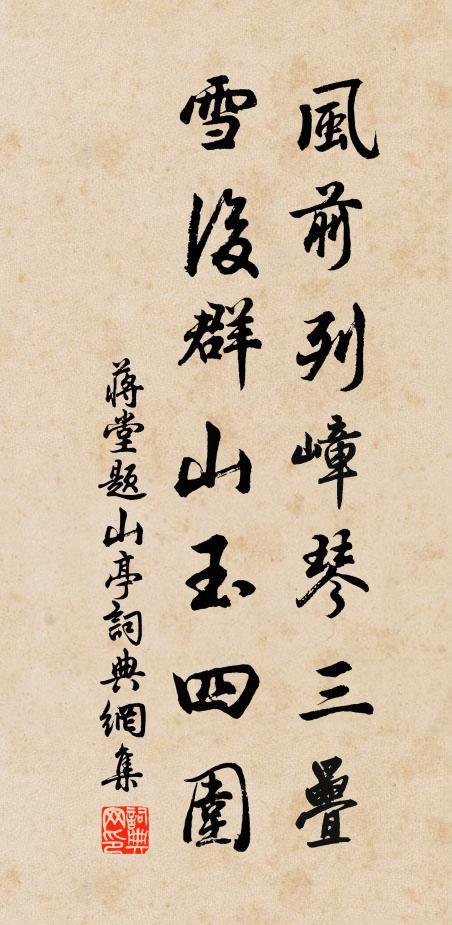 風前列嶂琴三疊
雪後群山玉四圍
蔣堂題山亭詞典網集
詞典網印